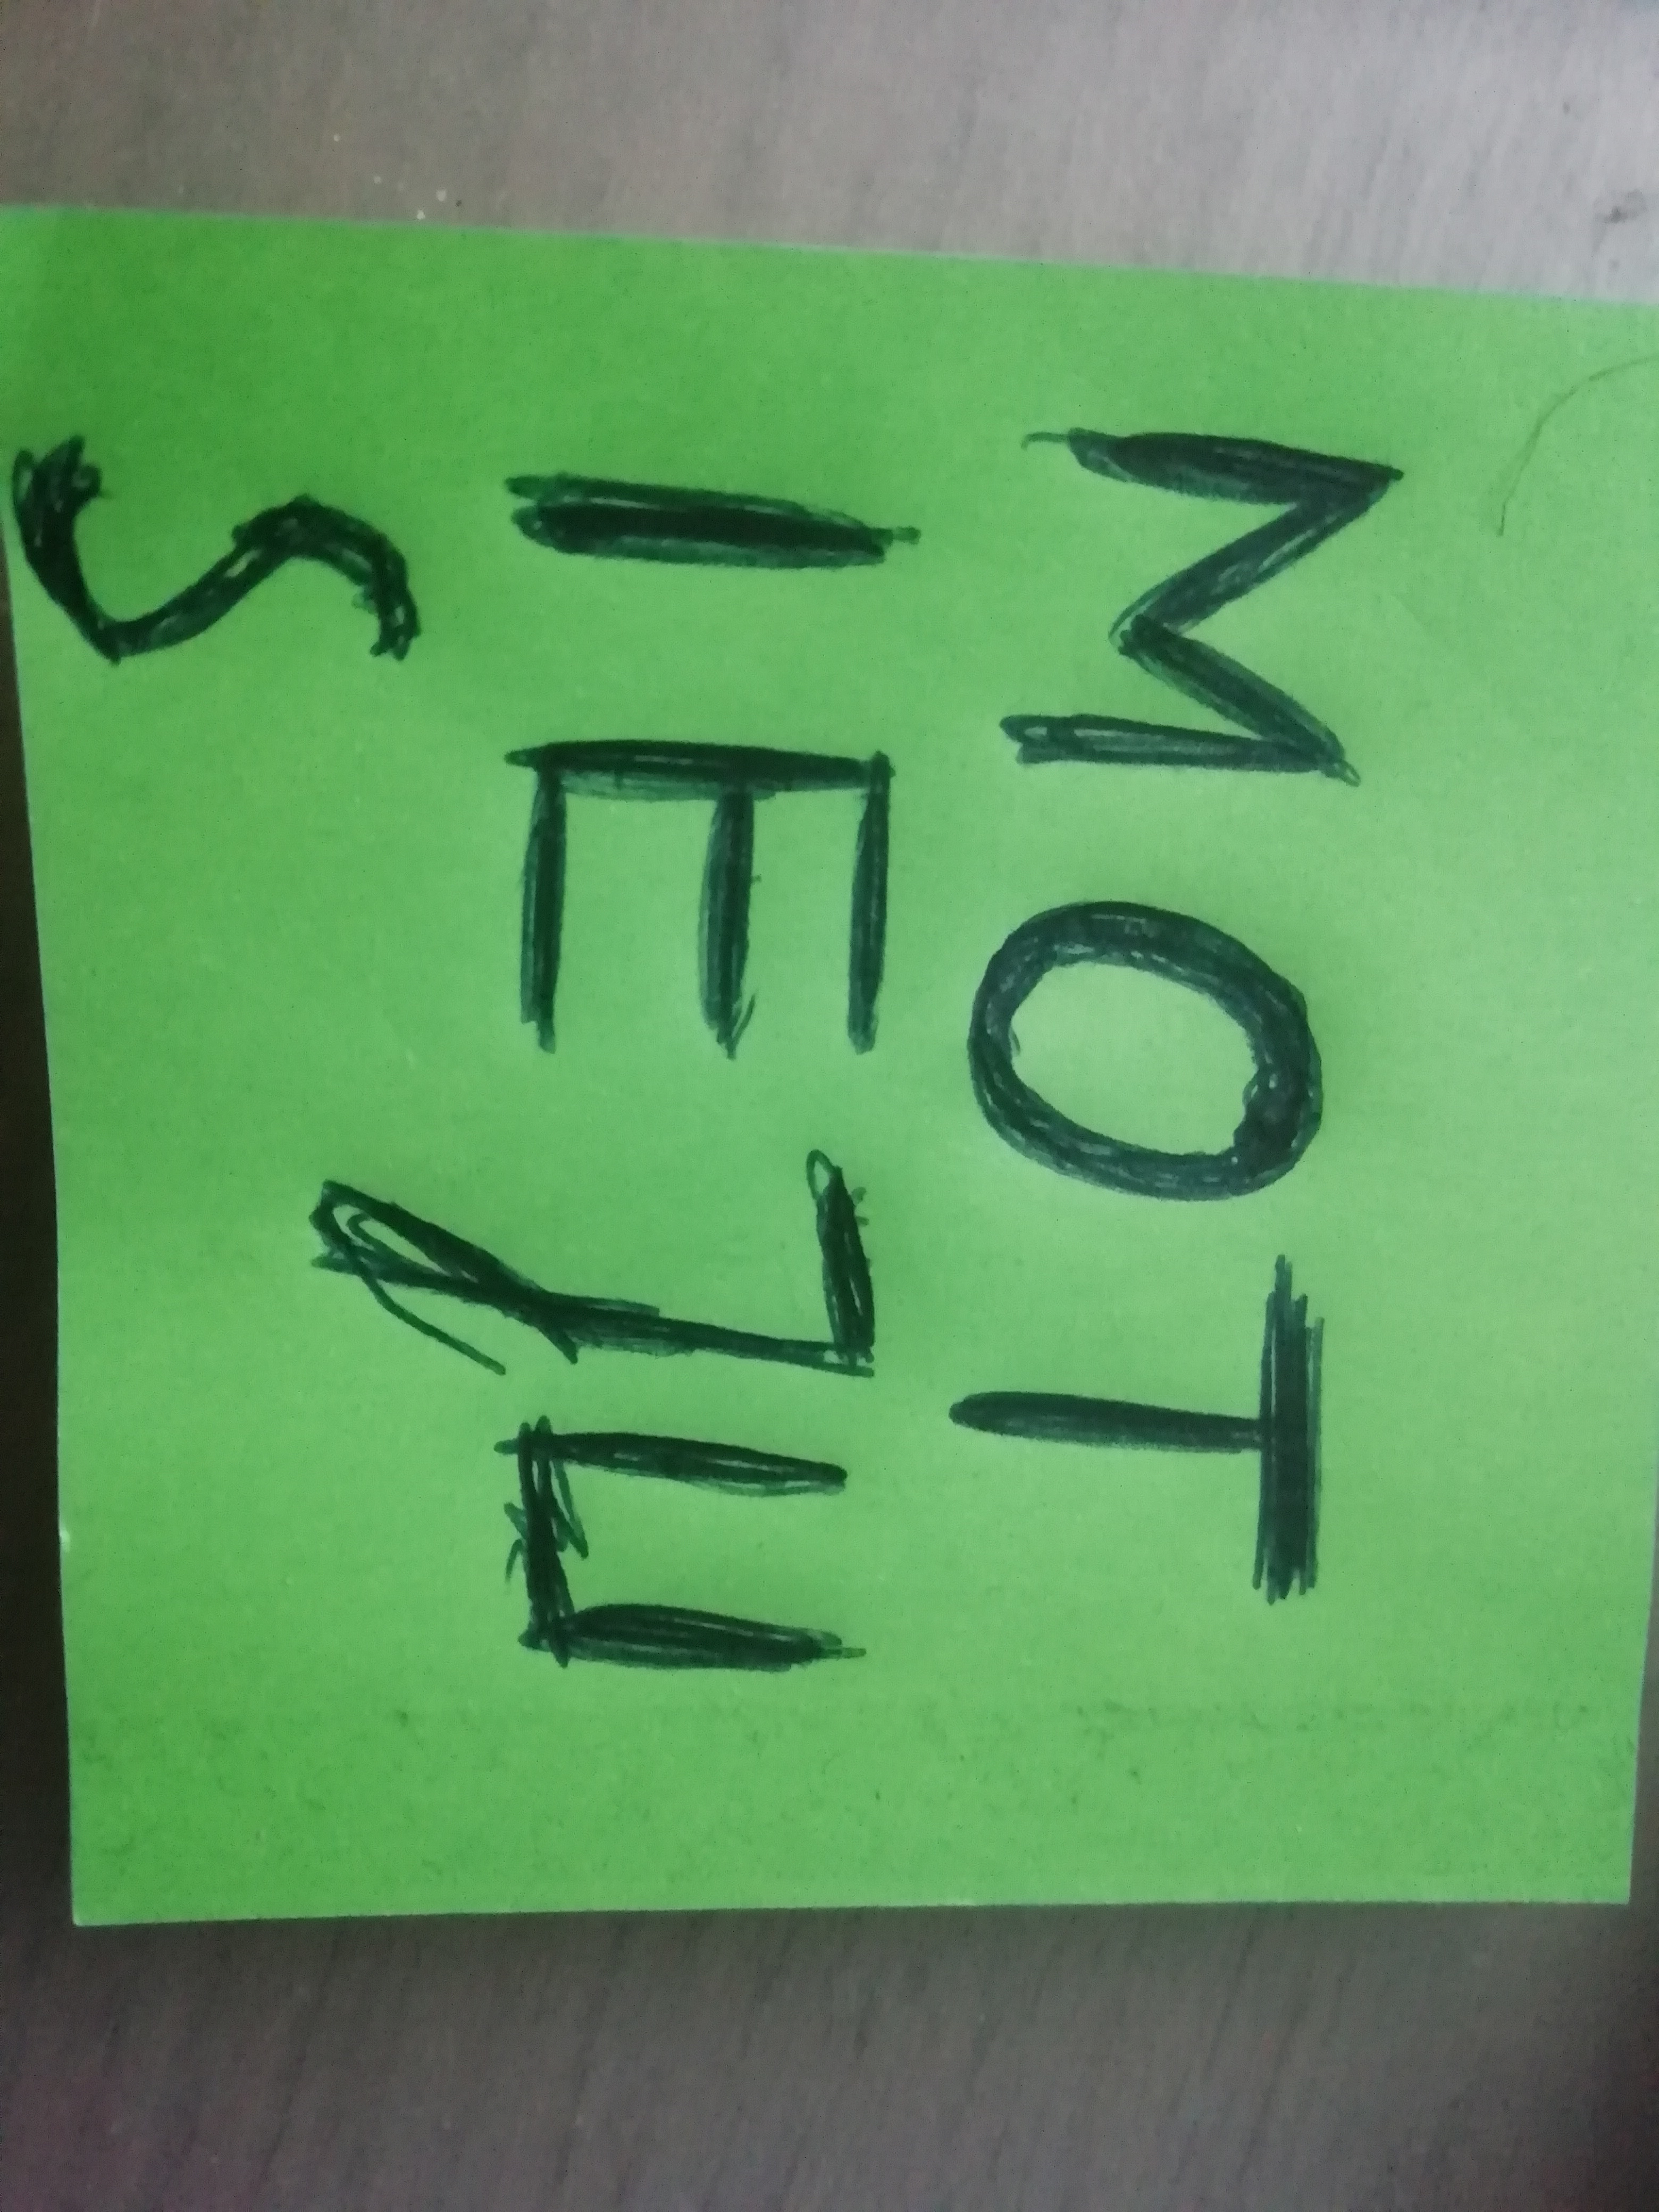 MOT
IEJU
S